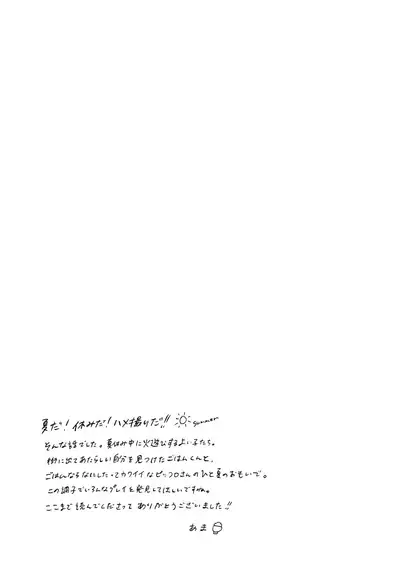 夏だ！休みだ！ハメ撮りだ!! summer
そんな話でした。夏休み中に火遊びするよい子たち。
街に出てあたらしい自分を見つけたごはんくんと、
ごはんならなにしたってカワイイなピッコロさんのひと夏のおもいで。
この調子でいろんなプレイを発見してほしいですね。
ここまで読んでくださってありがとうございました!!
あま